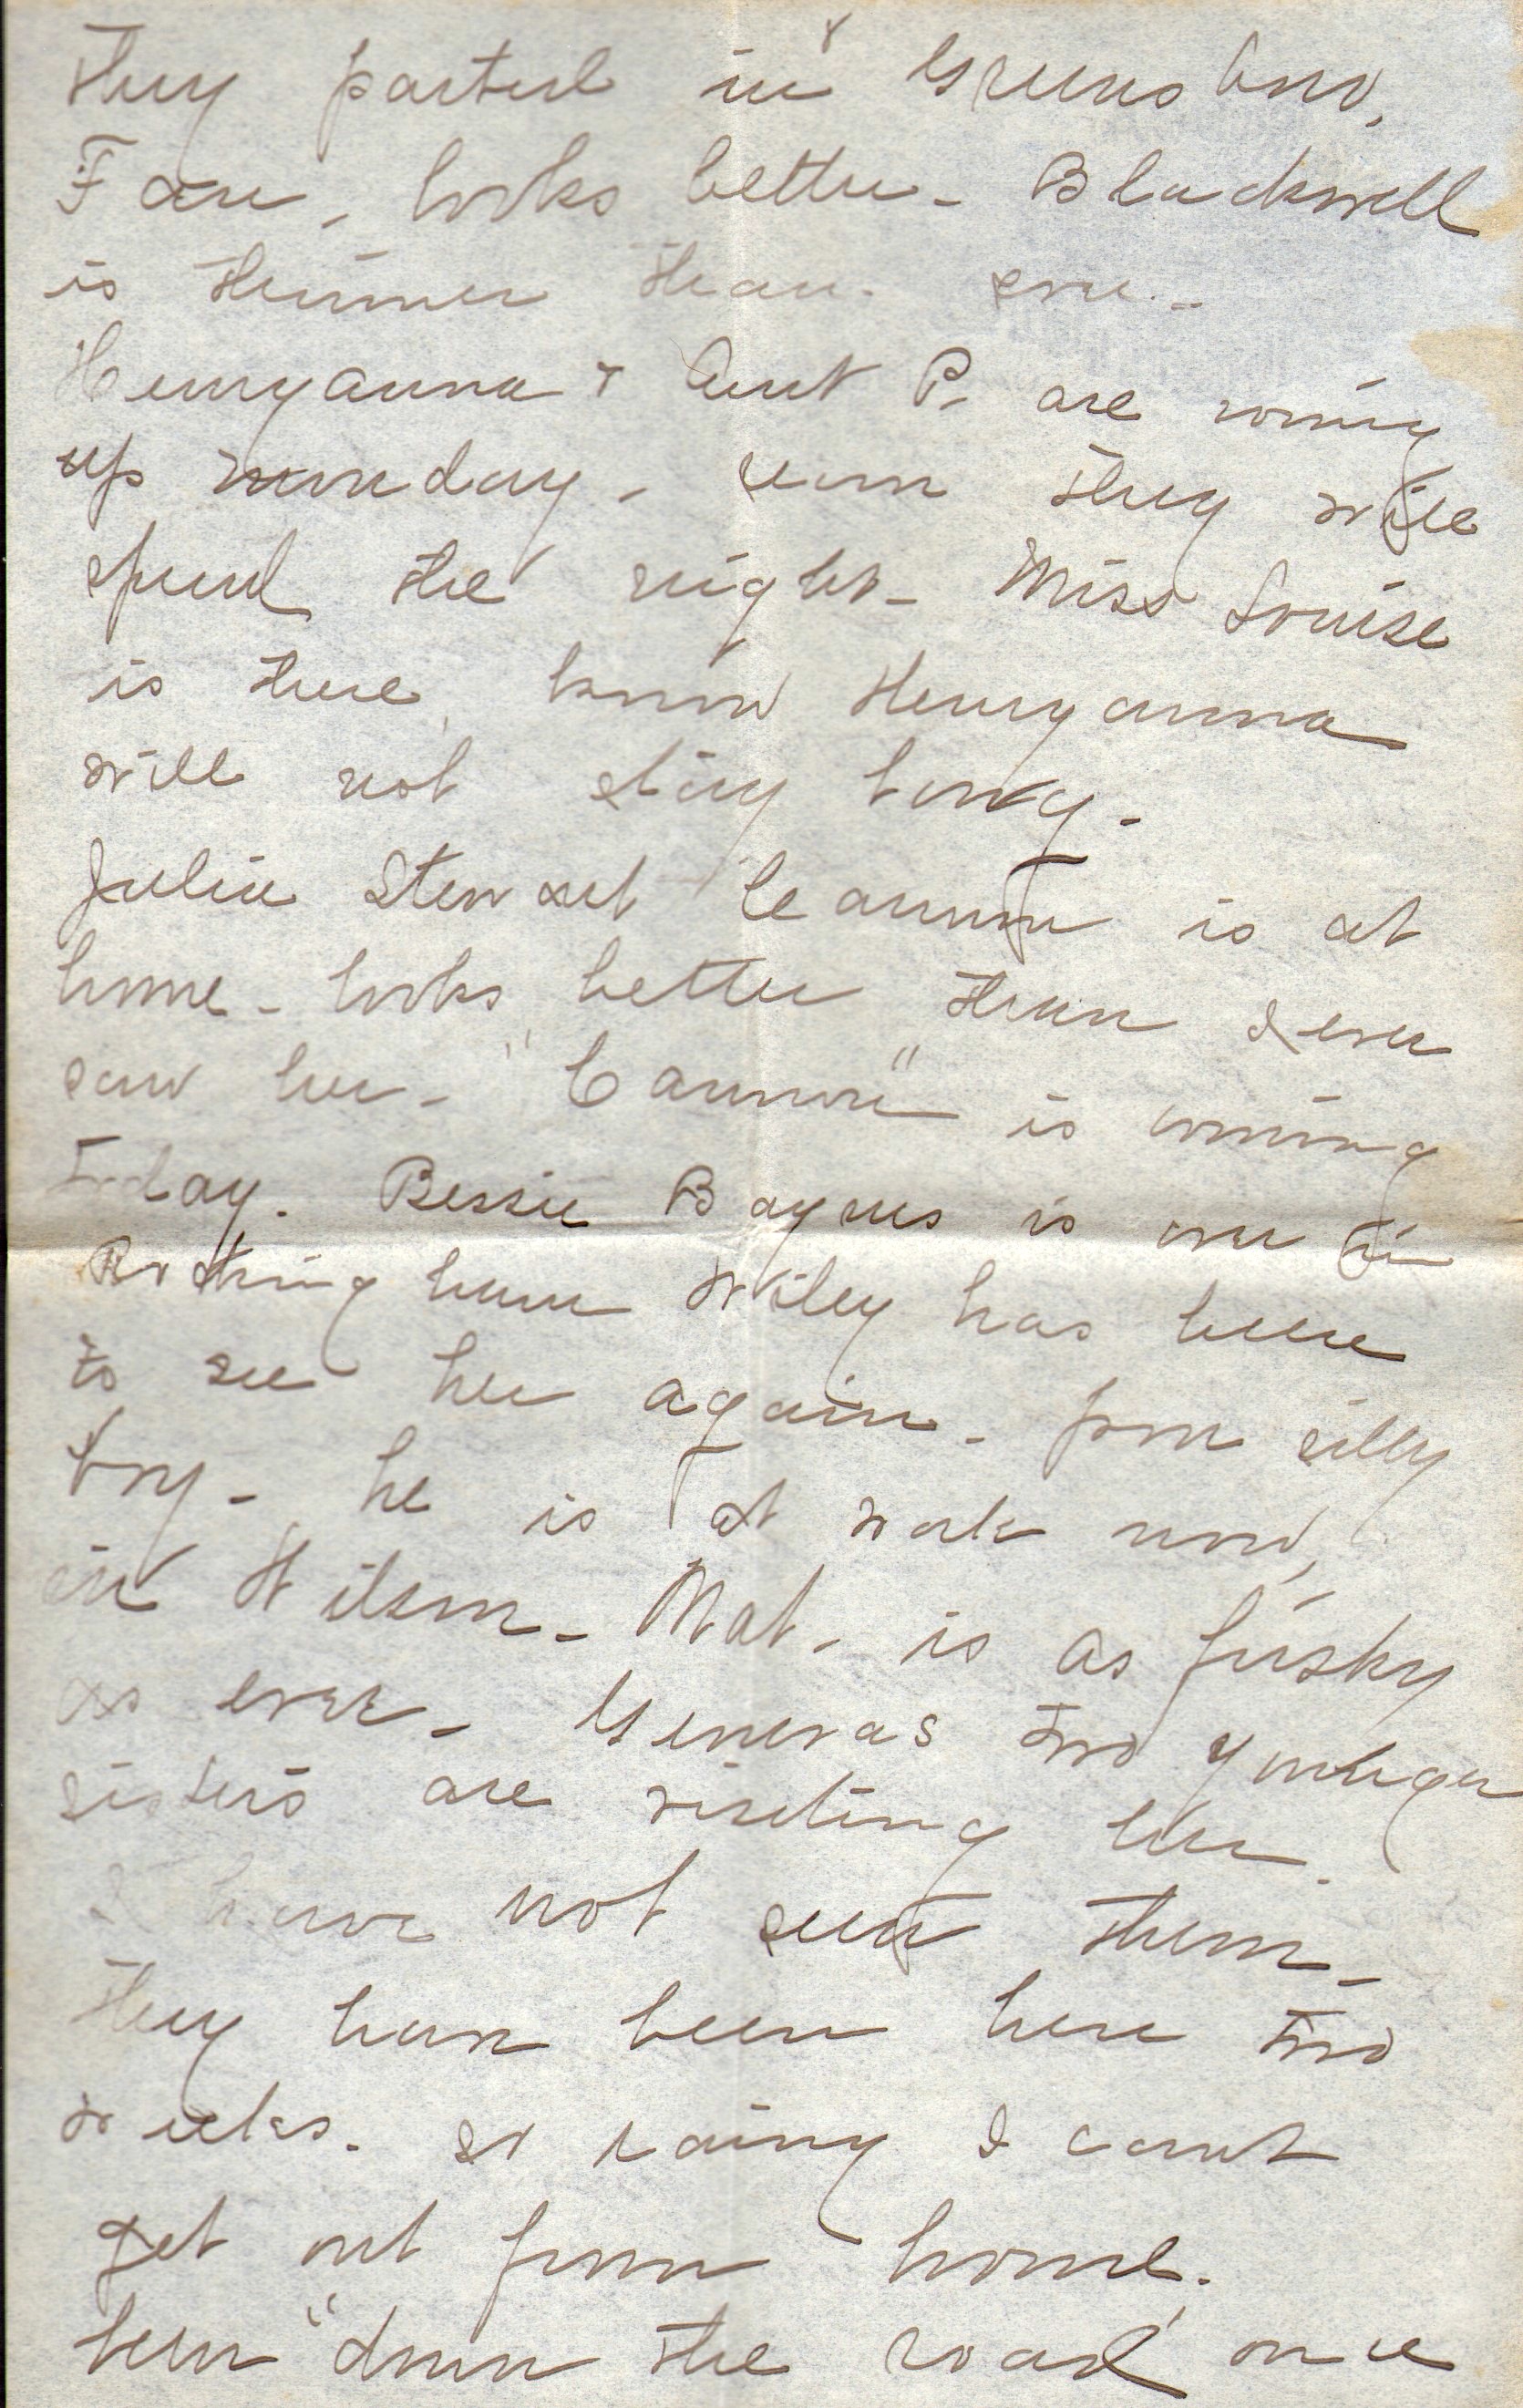 8
They parted in Greensboro,
Fan, looks better - Blackwell
is thinner than ever -
Henryanna + Aunt P. are coming
up monday - they will
spend the night - Miss Louise
is there, know Henryanna
will not stay long -
Julia Stewart Cannon is at
home - looks better than I ever
saw her - "Cannon" is coming
Today. Bessie Baynes is over in
Rockingham Wiley has been
to see her again - poor silly
boy - he is at work now,
in Wilson - Mat - is as frisky
as ever - Genevas two younger
sisters are visiting her
I have not seen them -
They have been here two
weeks. so rainy I cant
get out from home.
been "down the road" once